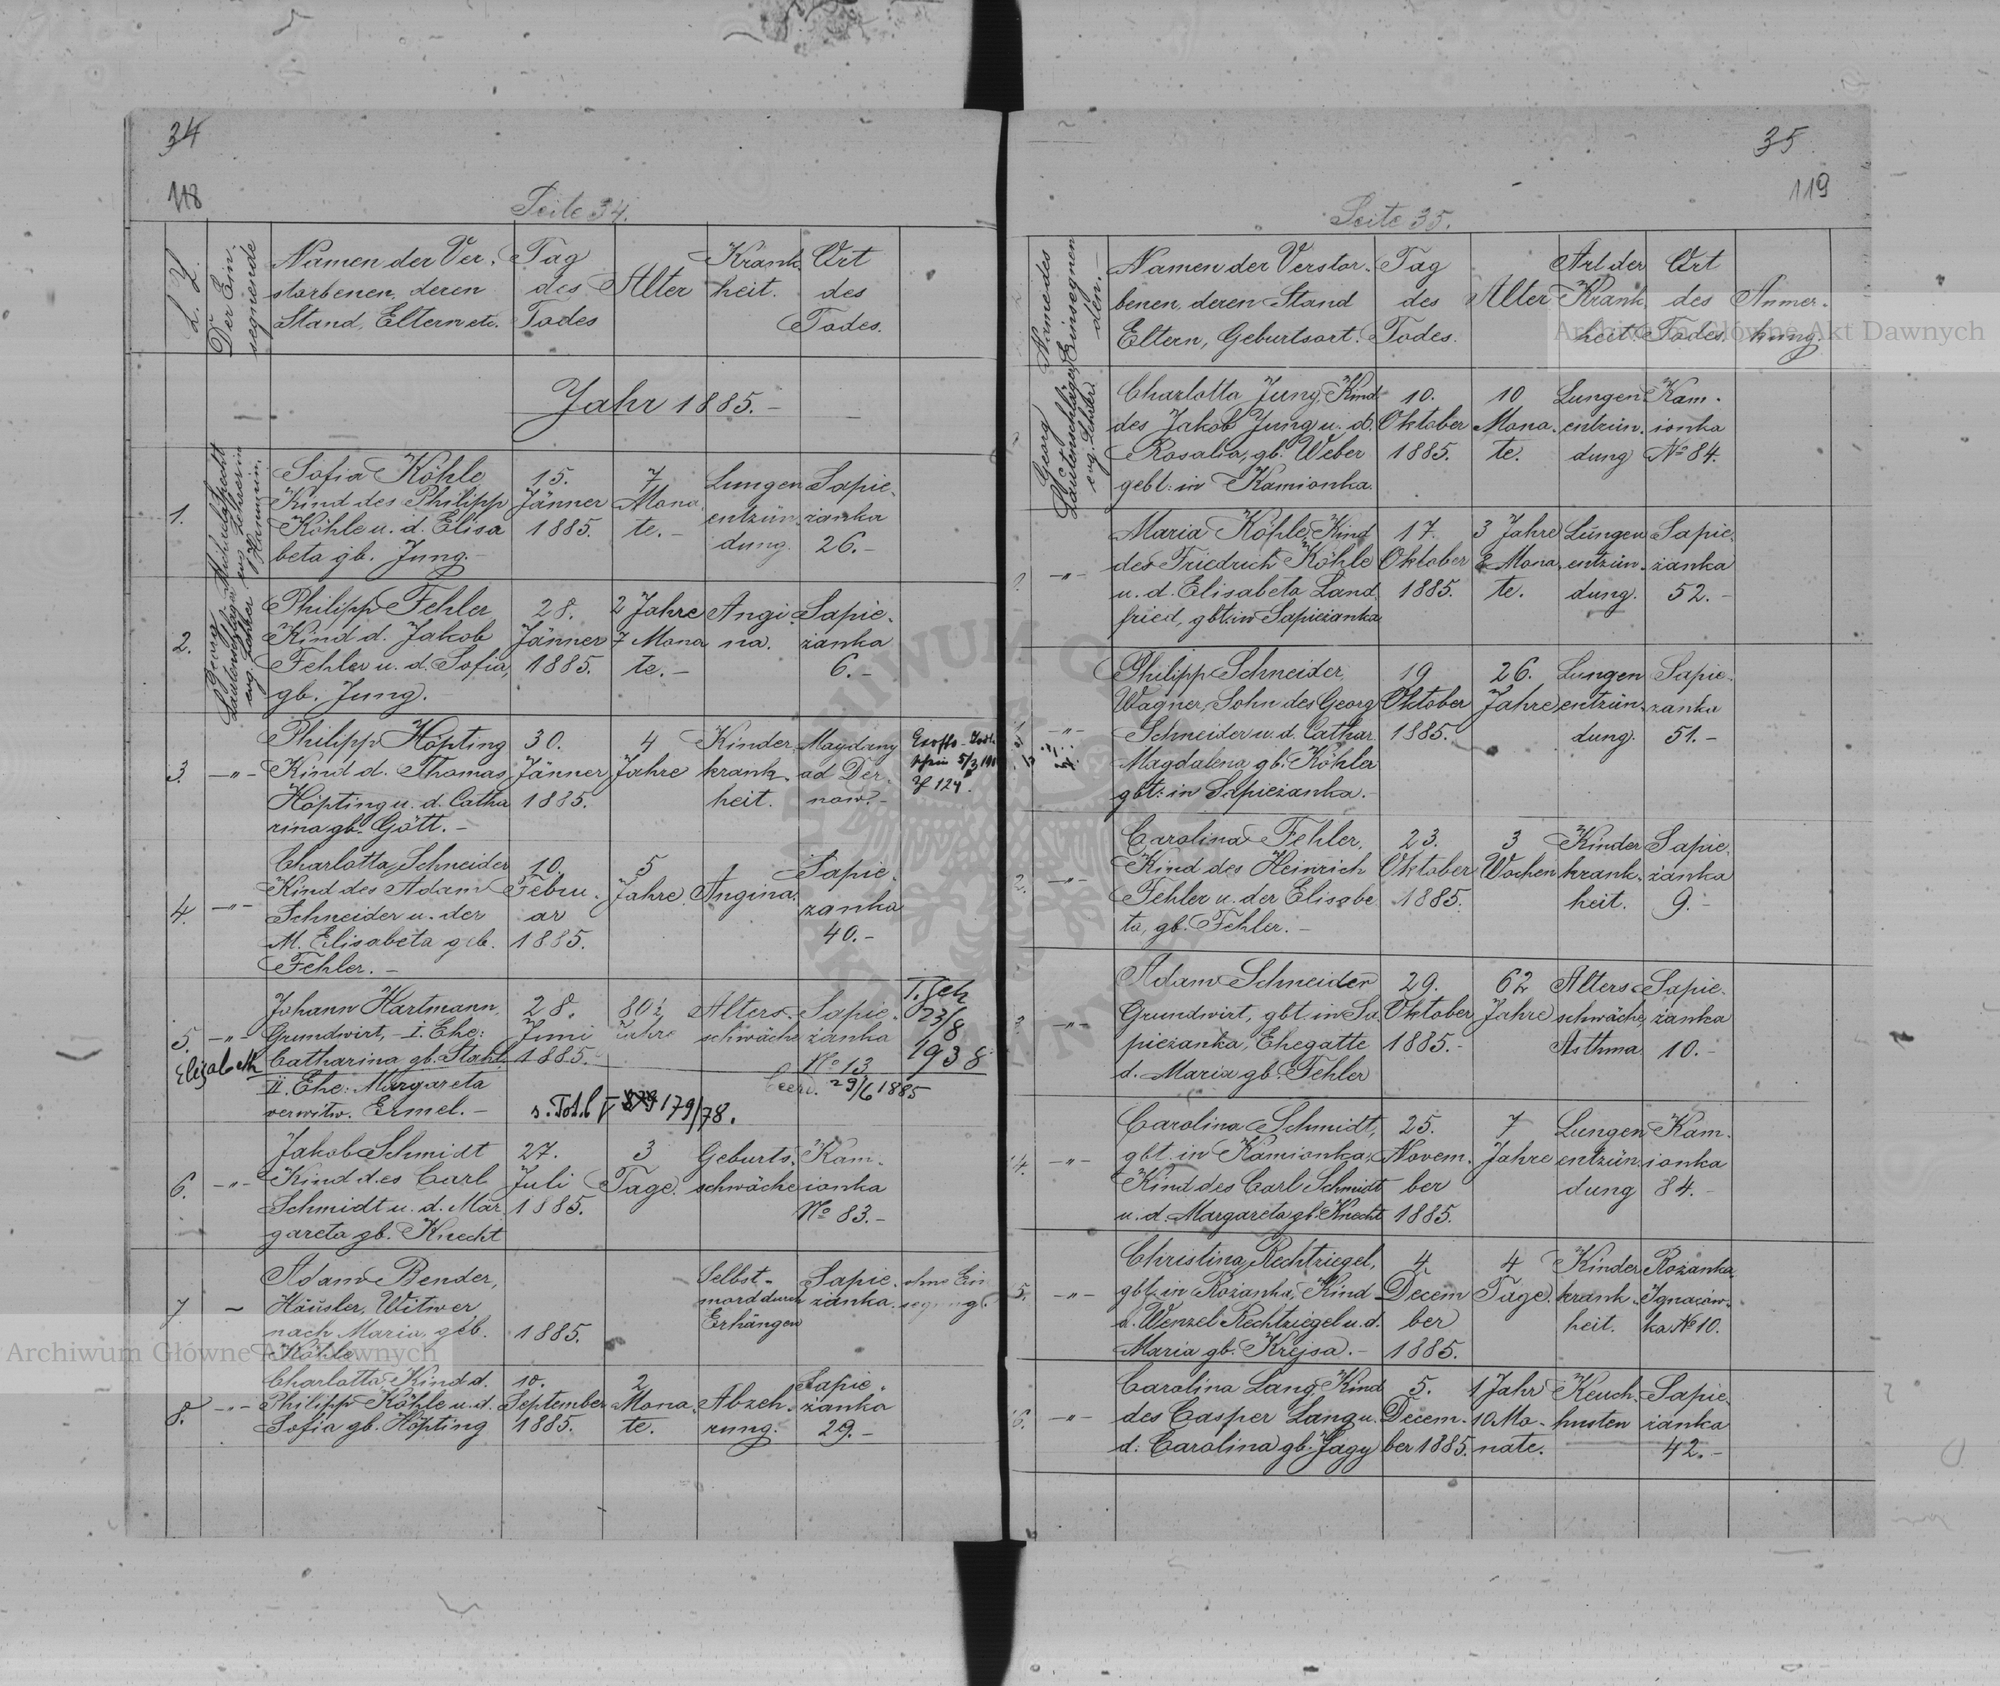 34
118
Seite 34.
L. Z.
Der Ein-
segnende
Namen der Ver-
storbenen, deren
Stand, Eltern etc.
Tag
des
Todes
Alter
Krank-
heit.
Ort
des
Todes.
Jahr 1885.-
Georg
Lautenschläger
evg. Lehrer
1.
Sofia Köhle
Kind des Philipp
Köhle u. d. Elisa
beta gb. Jung.-
15.
Jänner
1885.
7
Mona
te.-
Lungen
entzün-
dung.
Sapie-
żanka
26.-
2.
Philipp Fehler
Kind d. Jakob
Fehler u. d. Sofia,
gb. Jung.
28.
Jänner
1885.
2 Jahre
7 Mona
te.-
Angi-
na.
Sapie-
żanka
6.-
3.
-"-
Philipp Höpting
Kind d. Thomas
Höpting u. d. Catha
rina gb. Gött.-
30.
Jänner
1885.
4
Jahre
Kinder
krank-
heit.
Maydany
ad Der-
now.-
124.
4.
-"-
Charlotta Schneider
Kind des Adam
Schneider u. der
M. Elisabeta geb.
Fehler.-
10.
Febru-
ar
1885.
5
Jahre
Angina.
Sapie-
żanka
40.-
5.
-"-
Elizabeth
Johann Hartmann,
Grundwirt, - I. Ehe:
Catharina gb. Stahl,
II. Ehe: Margareta
verwitw. Ermel.-
28.
Juni
1885.-
80½
Jahre
Alters-
schwäche
Sapie-
żanka
No 13
beerd. 29/6 1885
T. Sch
23/8
1938
179/78.
6.
-"-
Jakob Schmidt
Kind des Carl
Schmidt u. d. Mar
gareta gb. Knecht
27.
Juli
1885.
3
Tage.
Geburts-
schwäche
Kam-
ionka
No 83.-
7
-
Adam Bender,
Häusler, Witwer
nach Maria geb.
Köhle
1885.
Selbst-
mord durch
Erhängen
Sapie-
żanka.
ohne Ein
segnung.
8.
-"-
Charlotta, Kind d.
Philipp Köhle u. d.
Sofia gb. Höpting
10.
September
1885.
2
Mona-
te.
Abzeh-
rung.
Sapie-
żanka
29.-
35
119
Seite 35.
Name des
Einsegnen
den.-
Namen der Verstor-
benen, deren Stand
Eltern, Geburtsort.
Tag
des
Todes.
Alter
Art der
Krank-
heit.
Ort
des
Todes.
Anmer-
kung.
Georg
Lautenschläger
evg. Lehrer
Charlotta Jung, Kind
des Jakob Jung u. d.
Rosalia, gb. Weber
gebt: in Kamionka.
10.
Oktober
1885.
10
Mona-
te.
Lungen
entzün-
dung
Kam-
ionka
No 84.
-"-
Maria Köhle, Kind
des Friedrich Köhle
u. d. Elisabeta Land
fried, gbt: in Sapieżanka
17.
Oktober
1885.
3 Jahre
8 Mona-
te.
Lungen
entzün-
dung.
Sapie-
żanka
52.-
-"-
Philipp Schneider,
Wagner, Sohn des Georg
Schneider u. d. Cathar.
Magdalena gb. Köhler
gbt: in Sapieżanka.-
19
Oktober
1885.
26.
Jahre
Lungen
entzün-
dung.
Sapie-
żanka
51.-
-"-
Carolina Fehler,
Kind des Heinrich
Fehler u. der Elisabe
ta, gb. Fehler.-
23.
Oktober
1885.
3
Wochen
Kinder
krank-
heit.
Sapie-
żanka
9.-
-"-
Adam Schneider
Grundwirt, gbt. in Sa-
pieżanka, Ehegatte
d. Maria gb. Fehler
29.
Oktober
1885.-
62
Jahre
Alters-
schwäche,
Asthma
Sapie-
żanka
10.-
14.
-"-
Carolina Schmidt,
gbt. in Kamionka,
Kind des Carl Schmidt
u. d. Margareta gb. Knecht
25.
Novem-
ber
1885.
7
Jahre
Lungen
entzün-
dung
Kam-
ionka
84.-
5.
-"-
Christina Rechtziegel,
gbt. in Rożanka, Kind
d. Wenzel Rechtziegel u. d.
Maria gb. Krejsa.-
4
Decem
ber
1885.
4
Tage.
Kinder
krank-
heit.
Rożanka,
Ignacow-
ka No 10.
6.
-"-
Carolina Lang, Kind
des Casper Lang u.
d. Carolina gb. Jagy
5.
Decem-
ber 1885.
1 Jahr
10 Mo-
nate.
Keuch-
husten
Sapie-
żanka
42.-
Archiwum Główne Akt Dawnych
Archiwum Główne Akt Dawnych